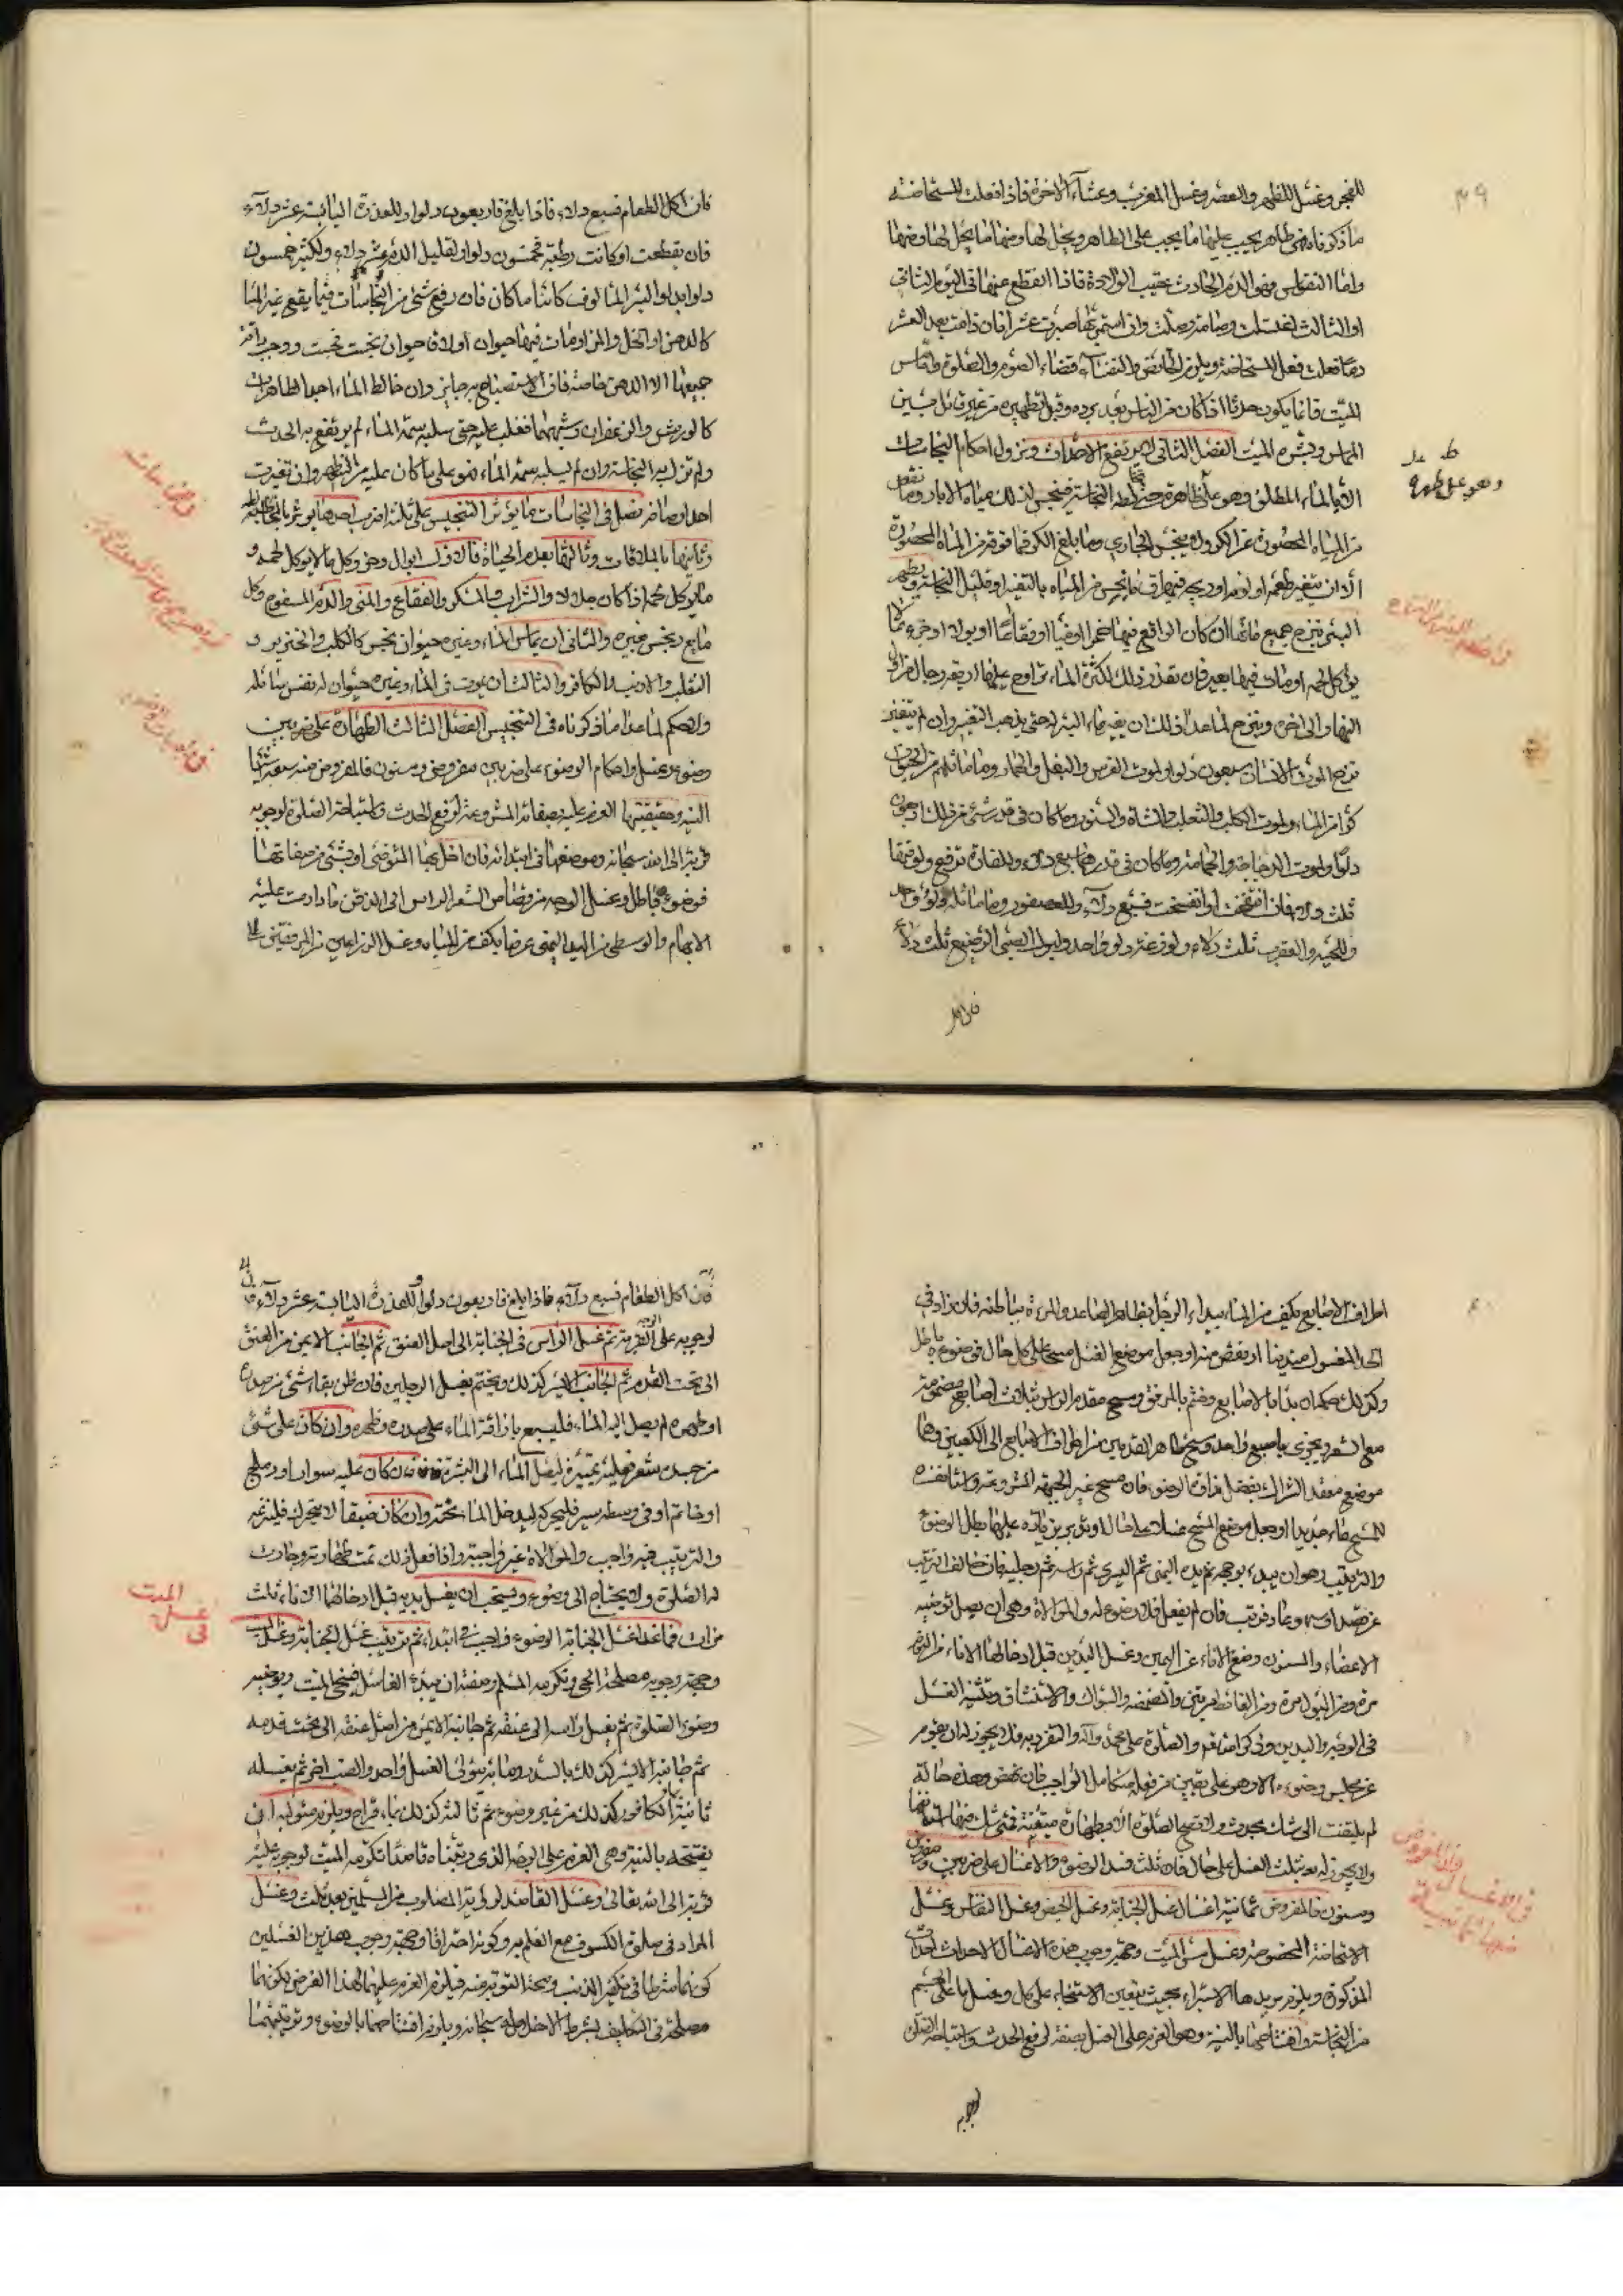 للفجر وغسل للظهر والعصر وغسل المغرب وعشاء الآخرة فاذا فعلت المستحاضة
ما ذكرناه فهي طاهر يجب عليها ما يجب على الطاهر ويحل لها ومنها ما يحل لها ومنها
واما النفاس فهو الدم الحادث عقيب الولادة فاذا انقطع عنها في اليوم الثاني
او الثالث اغتسلت وصامت وصلت وان استمر بها صبرت عشرا فان دامت بعد العشر
دما فعلت فعل المستحاضة ويلزم الحائض والنفساء قضاء الصوم والصلوة وماس
الميت فانما يكون حدثا اذا كان من الناس بعد برده وقبل تطهيره من غير حائل بين
الماس وبشرة الميت الفصل الثاني لا يرتفع الاحداث ويزول احكام النجاسات
الا بالماء المطلق وهو على طاهرة حتى تخالطه النجاسة فينجس لذلك مياه الابار وما نقص
من المياه المحصورة عن الكر ولا ينجس الجاري وما بلغ الكر فما فوقه من المياه المحصورة
الا ان يتغير طعمه او لونه او ريحه فيهراق ما نجس من المياه بالتغير او قليل النجاسة ويطهر
البئر بنزح جميع مائها ان كان الواقع فيها خمرا او منيا او فقاعا او بول او خرء ما لا
يؤكل لحمه او مات فيها بعير فان تعذر ذلك لكثرة الماء تراوح عليها اربعة رجال من اول
النهار الى اخره وينزح لما عدا ذلك ان يغير ماء البئر حتى يذهب التغير وان لم يتغير
نزح لموت الانسان سبعون دلوا ولموت الفرس والبغل والحمار وما ماثلهم من الحيوان
كر من الماء ولموت الكلب والثعلب والشاة والسنور وما كان في قدر شيء من ذلك اربعون
دلوا ولموت الدجاجة والحمامة وما كان في قدرهما سبع دلاء وللفارة ترفع لوقتها
ثلث دلاء فان انتفخت او انفسخت فسبع دلاء وللعصفور وما ماثله دلو واحد
وللحية والعقرب ثلث دلاء ولوزغة دلو واحد ولبول الصبي الرضيع ثلث دلاء
فان اكل
وهو على طهره
فان اكل الطعام فسبع دلاء فاذا بلغ فاربعون دلوا وللعذرة اليابسة عشر دلاء
فان تقطعت او كانت رطبة فخمسون دلوا ولقليل الدم عشر دلاء ولكثيره خمسون
دلوا بدلو البئر المألوف كائنا ما كان فان وقع شئ من النجاسات فيما يقع غير الماء
كالدهن او الخل والمن او مات فيها حيوان او لاقا حيوان نجست تجست ووجب اراقة
جميعها الا الدهن خاصة فان الاستصباح به جايز وان خالط الماء احد الطاهرات
كالورس والزعفران وشبههما فغلب عليه حتى سلبه سمة الماء لم يرتفع به الحدث
ولم تزل به النجاسة وان لم يسلبه سمة الماء فهو على ما كان عليه من التطهير وان تغيرت
احد اوصافه فصل في النجاسات ما يؤثر التنجيس على ثلثة اضرب احدها يؤثر بالمخالطة
وثانيها بالملاقات وثالثها بعدم الحياة فالاول ابوال وخرؤ كل ما لا يؤكل لحمه و
ما يؤكل لحمه اذا كان جلالا والشراب المسكر والفقاع والمني والدم المسفوح وكل
مايع ينجس بغيره والثاني ان يماس الماء وغيره حيوان نجس كالكلب والخنزير و
الثعلب والارنب والكافر والثالث ان يموت في الماء وغيره حيوان له نفس سائلة
ولا حكم لما عدا ما ذكرناه في التنجيس الفصل الثالث الطهارة على ضربين
وضوء وغسل واحكام الوضوء على ضربين مفروض ومسنون فالمفروض منه سبعة اشيا
النية وحقيقتها العزم عليه بصفاته المشروعة لرفع الحدث واستباحة الصلوة لوجوبه
قربة الى الله سبحانه وموضعها في ابتدائه فان اخل بها المتوضي او بشئ من صفاتها
فوضوءه باطل وغسل الوجه من قصاص الشعر الراس الى الذقن ما دارت عليه
الابهام والوسطى من اليد اليمنى عرضا بكف من المياه وغسل الذراعين من المرفقين الى
اطراف الاصابع بكف من الماء يبدأ الرجل بظاهر الساعد والمرءة بباطنه فان زاد في
الحد المغسول متدينا او نقص منه او جعل موضع الغسل مسحا على كل حال فوضوءه باطل
وكذلك حكمه ان بدا بالاصابع وختم بالمرفق ومسح مقدم الراس بثلاث اصابع مضمومة
مع الشعر ويجزي باصبع واحد ومسح ظاهر القدمين من اطراف الاصابع الى الكعبين وهما
موضع معقد الشراك بفضل نداوة الوضوء فان مسح غير الجهة المشروعة او استأنف
للمسح ماء جديدا او جعل موضع المسح غسلا على حال او تؤبر بزيادة عليها بطل الوضوء
والترتيب وهو ان يبدء بوجهه ثم يده اليمنى ثم اليسرى ثم راسه ثم رجليه فان خالف الترتيب
عن قصد او سهو وعاد فرتب فان لم يفعل فلا وضوء له والموالاة وهي ان يصل توضيه
الاعضاء والمسنون وضع الاناء عن اليمين وغسل اليدين قبل ادخالهما الاناء من النوم
مرة ومن البول مرة ومن الغائط مرتين والمضمضة والسواك والاستنشاق وتثنية الغسل
في الوجه واليدين وذكر الله تعالى والصلوة على محمد وآله والتفرد به فلا يجوز له ان يقوم
عن مجلس وضوءه الا وهو على يقين من فعله متكامل الواجب فان نهض وهذه حاله
لم يلتفت الى شك يحدث ولا تصح الصلوة الا بطهارة متيقنة فمتى شك فيها استأنفها
ولا يجوز له بعد تثليث الغسل على حال فان ثلث فسد الوضوء والاغسال على ضربين مفروض
ومسنون فالمفروض ثمانية اغسال غسل الجنابة وغسل الحيض وغسل النفاس وغسل
الاستحاضة المخصوصة وغسل مس الميت وجهة وجوب هذه الاغسال الاحداث
المذكورة ويلزم مريدها الاستبراء بحيث يتعين الاستنجاء على كل وغسل ما على الجسم
من النجاسة وافتتاحها بالنية وهو العزم على الغسل بصفته لرفع الحدث واستباحة الصلوة
لوجوبه
فان اكل الطعام فسبع دلاء فاذا بلغ فاربعون دلوا وللعذرة اليابسة عشر دلاء
لوجوبه على الوجه القربة ثم غسل الراس في الجنابة الى اصل العنق ثم الجانب الايمن من العنق
الى تحت القدم ثم الجانب الايسر كذلك ويختم بغسل الرجلين فان ظن بقاء شئ من صدره
او ظهره لم يصل اليه الماء فليسبع باراقة الماء على صدره وظهره وان كان على شئ
من جسده شعر فعليه تمييزه ليصل الماء الى البشرة فان كان عليه سوار او دملج
او خاتم او في وسطه سير فليحركه ليدخل الماء تحته وان كان ضيقا لا يتحرك فلينزعه
والترتيب فيه واجب والموالاة غير واجبة واذا فعل ذلك تمت طهارته وجازت
له الصلوة ولا يحتاج الى وضوء ويستحب ان يغسل يديه قبل ادخالهما الاناء ثلث
مرات فما عدا غسل الجنابة الوضوء واجب في ابتداءه ثم ترتيب غسل الجنابة وغسل الميت
وجهة وجوبه مصلحة الحي وتكرمة المسلم وصفته ان يبدء الغاسل فينجي الميت ويوضيه
وضوء الصلوة ثم يغسل راسه الى عنقه ثم جانبه الايمن من اصل عنقه الى تحت قدمه
ثم جانبه الايسر كذلك بالسدر وماؤه يتولى الغسل واحد والصب اخر ثم يغسله
ثانية بالكافور كذلك من غير وضوء ثم ثالثة كذلك بماء قراح ويلزم متوليه ان
يفتتحه بالنية وهي العزم على الوجه الذي رتبناه قاصدا تكرمة الميت لوجوبه عليه
قربة الى الله تعالى وغسل القاصد لرؤية المصلوب من المسلمين بعد ثلث وغسل
المراد في صلوة الكسوف مع العلم به وكونه احتراقا وجهة وجوب هذين الغسلين
كونهما شرطا في تكفير الذنب وصحة التوبة منه فيلزم العزم عليهما لهذا الغرض بكونهما
مصلحة في التكليف بشرط الاخلاص له سبحانه ويلزم افتتاحهما بالوضوء وترتيبهما
في غسل الميت